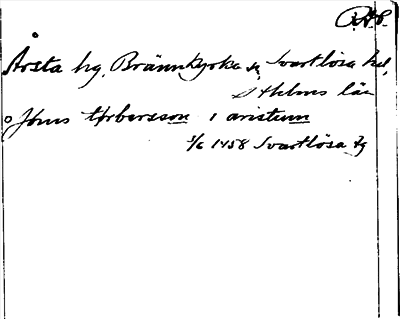 P.A.S.
Årsta hg, Brännkyrka sn, Svartlösa hd,
Sthlms län
Jöns torbersson i aristum
1/6 1458 Svartlösa tg